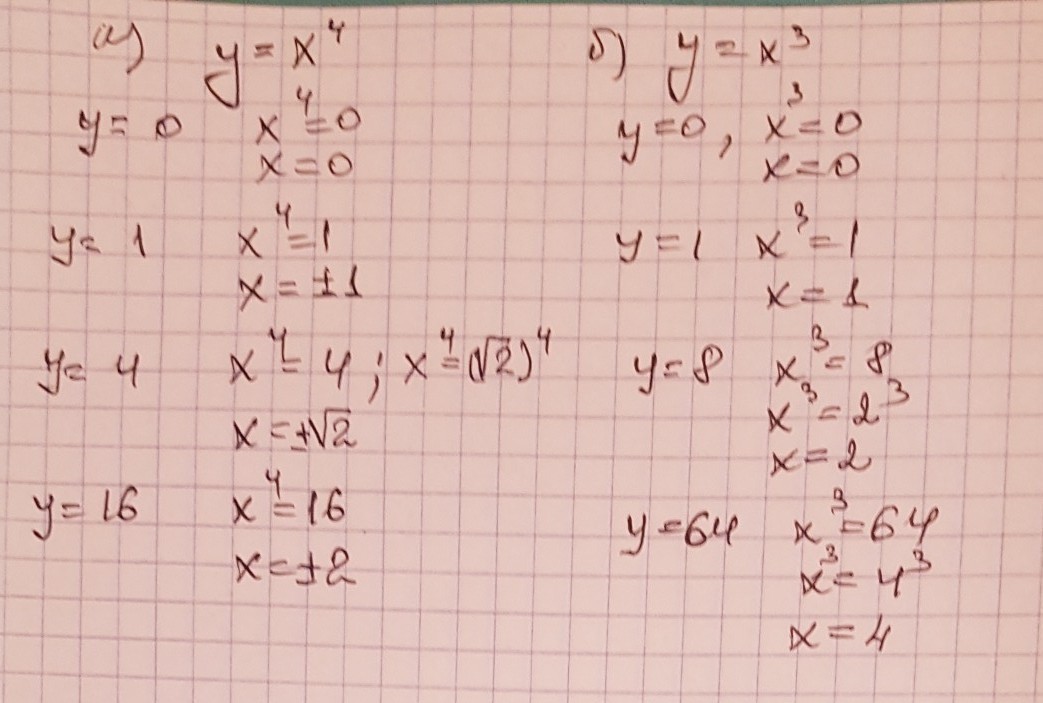 а) y = x⁴
y = 0 x⁴ = 0
x = 0
y = 1 x⁴ = 1
x = ±1
y = 4 x⁴ = 4 ; x⁴ = (√2)⁴
x = ±√2
y = 16 x⁴ = 16
x = ±2
б) y = x³
y = 0 , x³ = 0
x = 0
y = 1 x³ = 1
x = 1
y = 8 x³ = 8
x³ = 2³
x = 2
y = 64 x³ = 64
x³ = 4³
x = 4